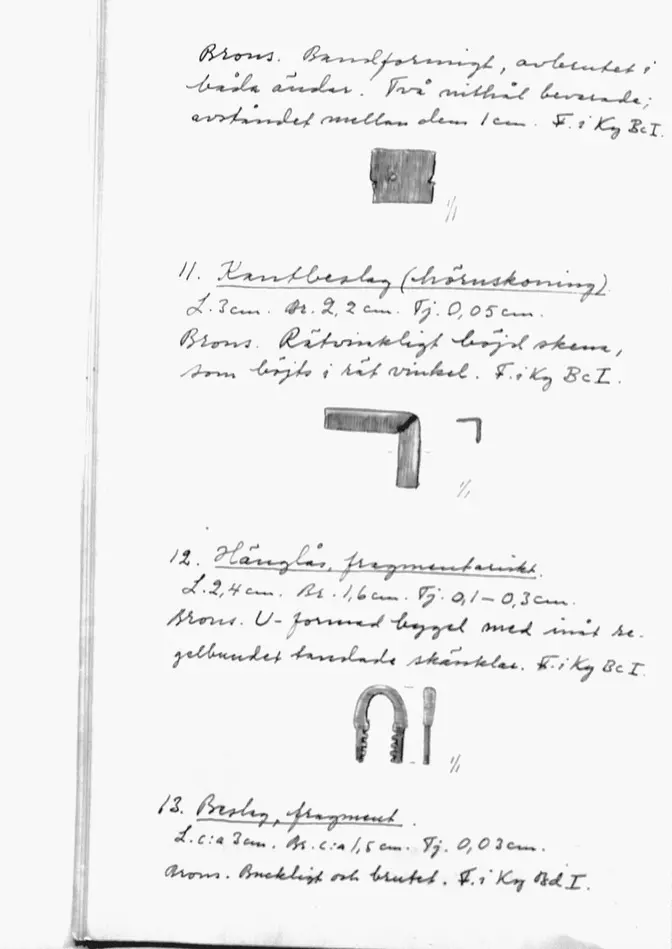 Brons. Bandformigt, avbrutet i
båda ändar. Två nithål bevarade;
avståndet mellan dem 1 cm. F. i Ky Bc I.
1/1
11. Kantbeslag (hörnskoning).
L. 3 cm. Br. 2,2 cm. Tj. 0,05 cm.
Brons. Rätvinkligt böjd skena,
som böjts i rät vinkel. F. i Ky Bc I.
1/1
12. Hänglås, fragmentariskt.
L. 2,4 cm. Br. 1,6 cm. Tj. 0,1 – 0,3 cm.
Brons. U-formad bygel med inåt re-
gelbundet tandade skänklar. F. i Ky Bc I.
1/1
13. Beslag, fragment.
L. c:a 3 cm. Br. c:a 1,5 cm. Tj. 0,03 cm.
Brons. Buckligt och brutet. F. i Ky Bd I.